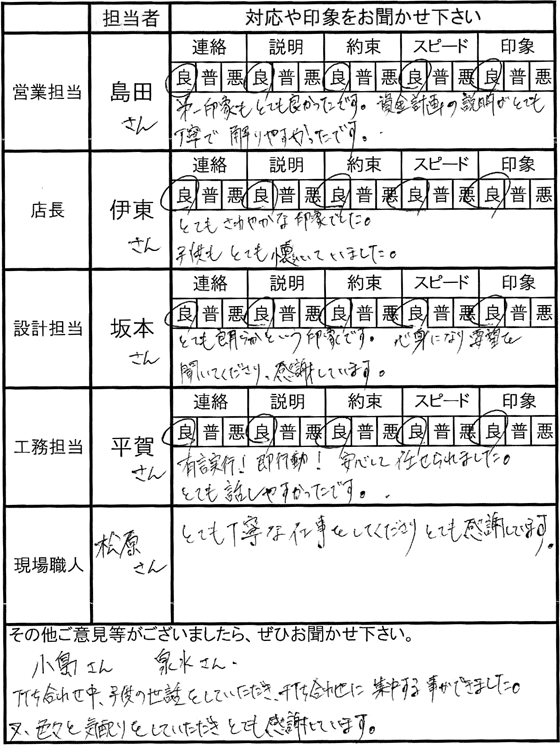 担当者 対応や印象をお聞かせ下さい
営業担当 島田 さん
連絡 説明 約束 スピード 印象
良 普 悪 良 普 悪 良 普 悪 良 普 悪 良 普 悪
第一印象もとても良かったです。資金計画の説明がとても
丁寧で解りやすかったです。
店長 伊東 さん
連絡 説明 約束 スピード 印象
良 普 悪 良 普 悪 良 普 悪 良 普 悪 良 普 悪
とてもさわやかな印象でした。
子供もとても懐いていました。
設計担当 坂本 さん
連絡 説明 約束 スピード 印象
良 普 悪 良 普 悪 良 普 悪 良 普 悪 良 普 悪
とても朗らかという印象です。心身になり要望を
聞いてくださり、感謝しています。
工務担当 平賀 さん
連絡 説明 約束 スピード 印象
良 普 悪 良 普 悪 良 普 悪 良 普 悪 良 普 悪
有言実行！即行動！安心して任せられました。
とても話しやすかったです。
現場職人 松原 さん
とても丁寧な仕事をしてくださりとても感謝しています。
その他ご意見等がございましたら、ぜひお聞かせ下さい。
小島さん 泉水さん
打ち合わせ中、子供の世話をしていただき、打ち合わせに集中する事ができました。
又、色々と気配りをしていただきとても感謝しています。